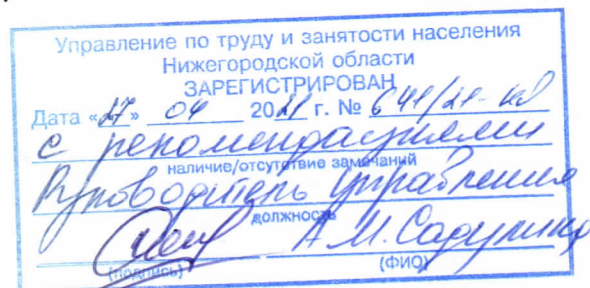 Управление по труду и занятости населения
Нижегородской области
ЗАРЕГИСТРИРОВАН
Дата «27» 04 2021 г. № 641/21-кд
с рекомендациями
наличие/отсутствие замечаний
Руководитель управления
должность
А.М. Садулина
(подпись) (ФИО)